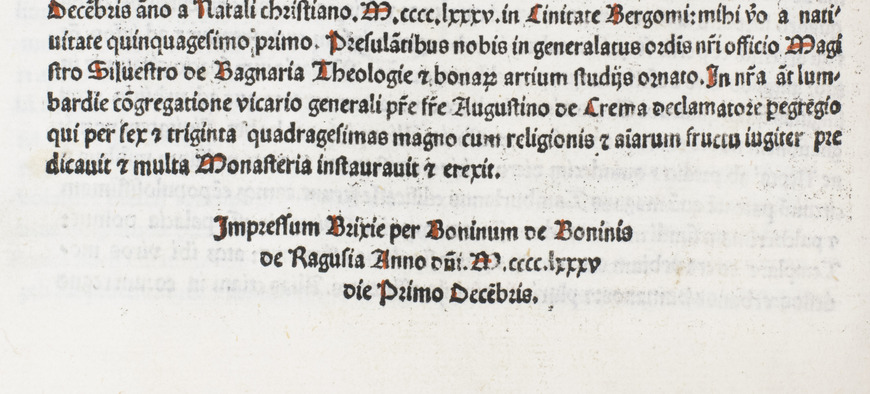 Decēbris āno a Natali christiano. M.cccc.lxxxv. in Ciuitate Bergomi: mihi ѷo a nati⸗
uitate quinquagesimo primo. Presulātibus nobis in generalatus ordīs nr̄i officio Magi
stro Siluestro de Bagnaria Theologie ⁊ bonaꝝ artium studijs ornato. In nr̄a āt lum⸗
bardie cōgregatione vicario generali pr̄e fr̄e Augustino de Crema declamatore pegregio
qui per sex ⁊ triginta quadragesimas magno cum religionis ⁊ aīarum fructu iugiter pre
dicauit ⁊ multa Monasteria instaurauit ⁊ erexit.
Impressum Brixie per Boninum de Boninis
de Ragusia Anno dn̄i. M.cccc.lxxxv
die Primo Decēbris.